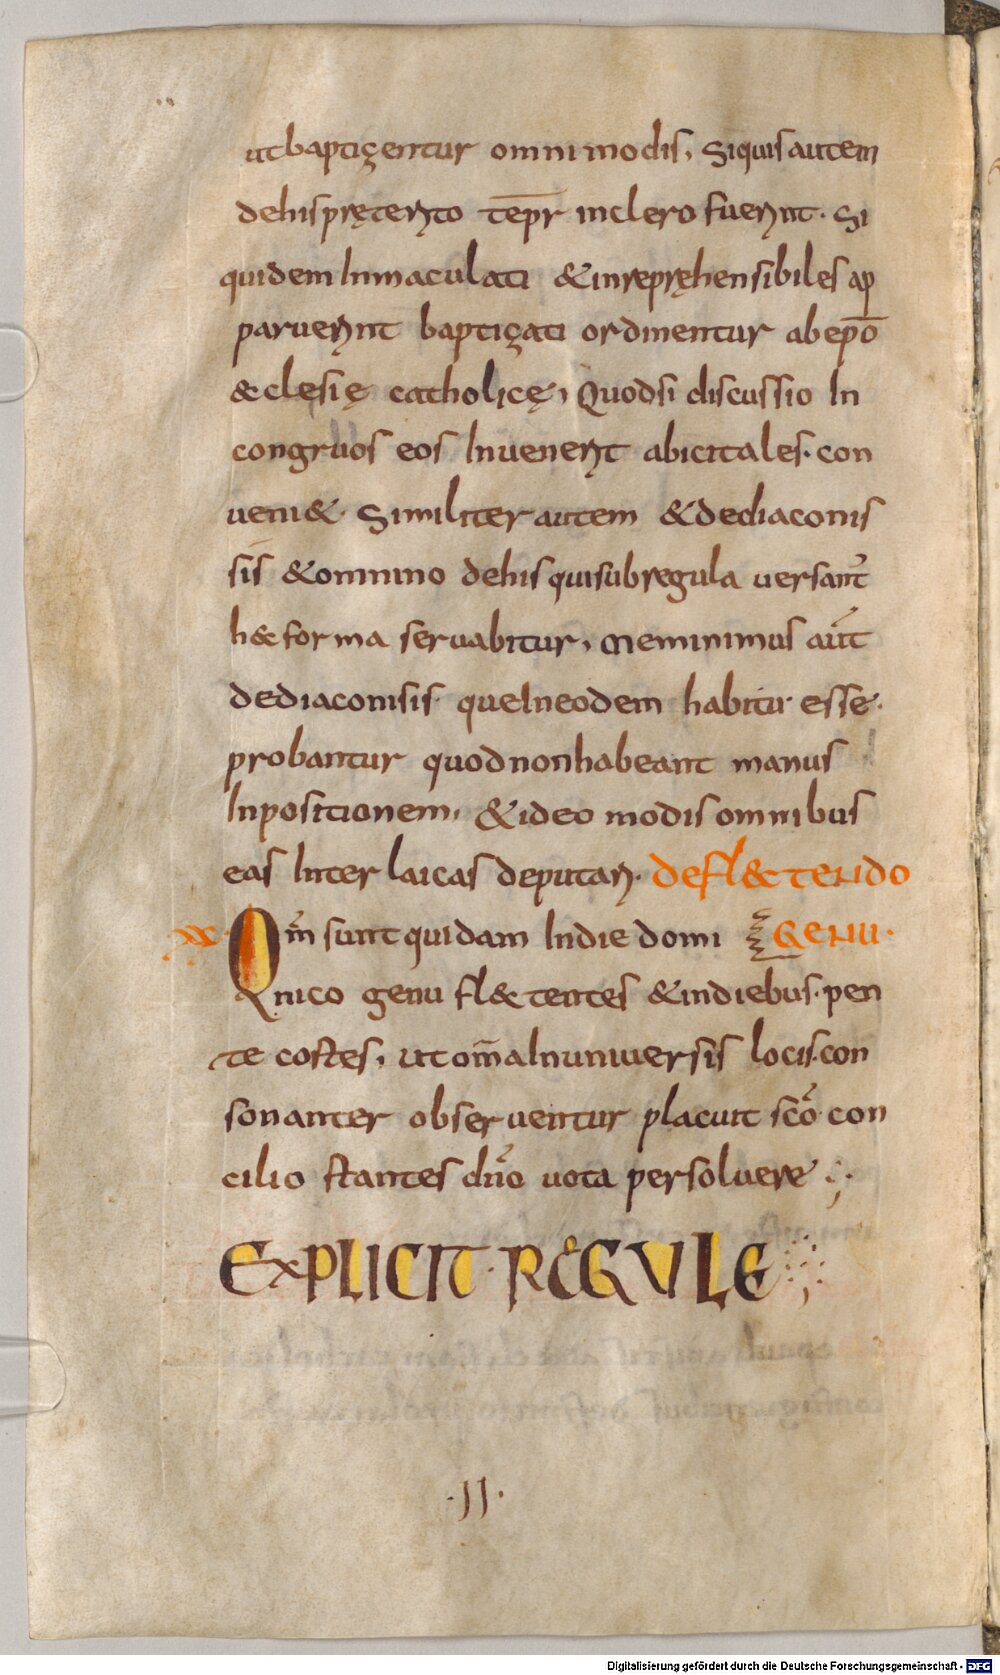 ut baptizentur omnimodis, Siquis autem
dehis pręterito tēpr inclero fuerint. Si
quidem Inmaculati & inrepręhensibiles ap
paruerint baptizati ordinentur ab epō
& clesię catholicę, Quodsi discussio In
congruos eos Inuenerit abici tales. con
ueni&. Similiter autem & dediaconis
sis & omnino dehis qui sub regula uersant
h& forma seruabitur, Meminimus aut
dediaconisis que Ineodem habitu esse.
probantur quod non habeant manus
Inpositionem, & ideo modis omnibus
eas Inter laicas deputari. DE FL&TENDO
XX Qm̄ sunt quidam Indie domi GENU.
nico genu fl&tentes & indiebus. pen
te costes, ut om̄a Inuniuersis locis. con
sonanter obseruentur placuit scō con
cilio stantes dn̄o uota persoluere
EXPLICIT REGULE
.II.
Digitalisierung gefördert durch die Deutsche Forschungsgemeinschaft - DFG